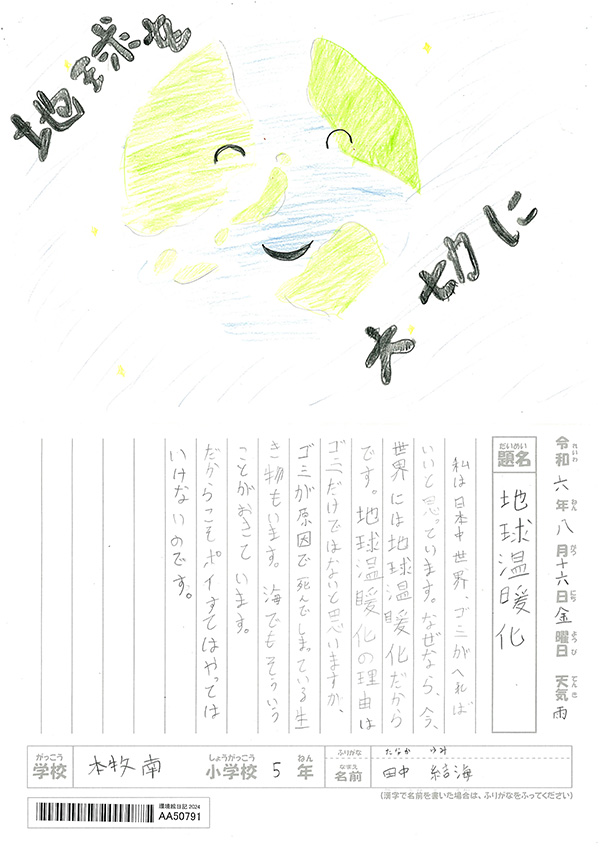 地球を
大切に
令和六年八月十六日金曜日 天気雨
れいわ ねん がつ にち ようび てんき
だいめい
題名
地球温暖化
私は日本中世界、ゴミがへれば
いいと思っています。なぜなら、今、
世界には地球温暖化だから
です。地球温暖化の理由は
ゴミだけではないと思いますが、
ゴミが原因で死んでしまっている生
き物もいます。海でもそういう
ことがおきています。
だからこそポイすてはやっては
いけないのです。
がっこう しょうがっこう ねん ふりがな たなか ゆみ
学校 本牧南 小学校 5 年 なまえ 名前 田中 結海
(漢字で名前を書いた場合は、ふりがなをふってください)
環境絵日記2024
AA50791